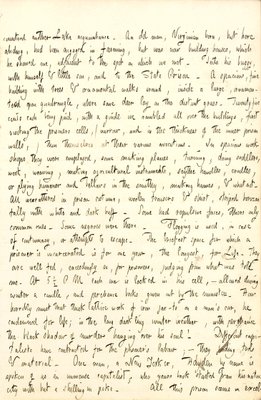 made acquaintance. An old man, Virginian born, but here
abiding, had been engaged in farming, but was now building houses, which
he showed me, adjacent to the spot in which we met. Into his buggy,
with himself & little son, and to the State Prison. A spacious, fine
building with trees & ornamental walks around, inside a large,
grey quadrangle, where some deer lay in the distant grass. Twenty five
cents each being paid, with a guide we rambled all over the buildings, first
visiting the prisoners cells, narrow, and in the thickness of the inner prison
walls, then themselves at their various avocations. In spacious work
shops they were employed, some making planes, turning, doing saddlery
work, weaving, making agricultural instruments, scythe handles, candles
or plying hammer and bellows in the smithy, making harness, & what not.
All were attired in prison costume, woolen trousers & shirt, striped horizon-
tally with white and dark. Some had repulsive faces, others only
common ones. Some negroes were there. Flogging is used, in case
of contumacy, or attempts to escape. The briefest space for which a
prisoner is incarcerated is for one year, the longest, for Life. They
are well fed, exceedingly so, for prisoners, judging from what was told
me. At 5½ P M each man is locked in his cell, allowed during
winter a candle, and perchance books given out by the
horribly must that thick lattice work of iron on a man's ear, he
condemned for life; in the dark winter weather, with perchance
the black shadow of murder hanging over his soul! Different cap-
italists have contracted for the prisoner's labour, they finding tools
& material. One man, a New Yorker, by name is
spoken of as a immense capitalist, who years back trod this
city with but a shilling in pocket. All this prison scene